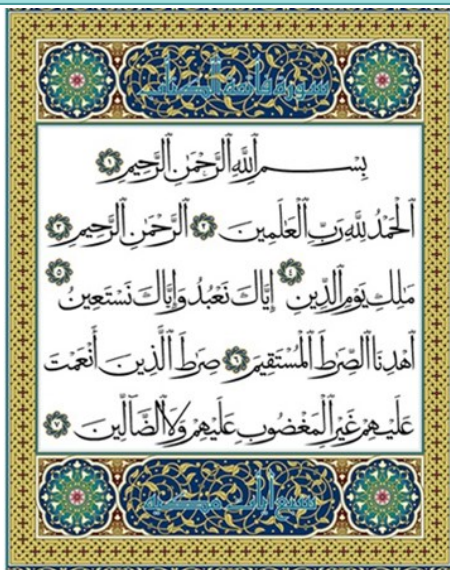 سورة فاتحة الكتاب
بِسْمِ ٱللَّهِ ٱلرَّحْمَٰنِ ٱلرَّحِيمِ ١
ٱلْحَمْدُ لِلَّهِ رَبِّ ٱلْعَٰلَمِينَ ٢ ٱلرَّحْمَٰنِ ٱلرَّحِيمِ ٣
مَٰلِكِ يَوْمِ ٱلدِّينِ ٤ إِيَّاكَ نَعْبُدُ وَإِيَّاكَ نَسْتَعِينُ ٥
ٱهْدِنَا ٱلصِّرَٰطَ ٱلْمُسْتَقِيمَ ٦ صِرَٰطَ ٱلَّذِينَ أَنْعَمْتَ
عَلَيْهِمْ غَيْرِ ٱلْمَغْضُوبِ عَلَيْهِمْ وَلَا ٱلضَّآلِّينَ ٧
سبع آيات مكية